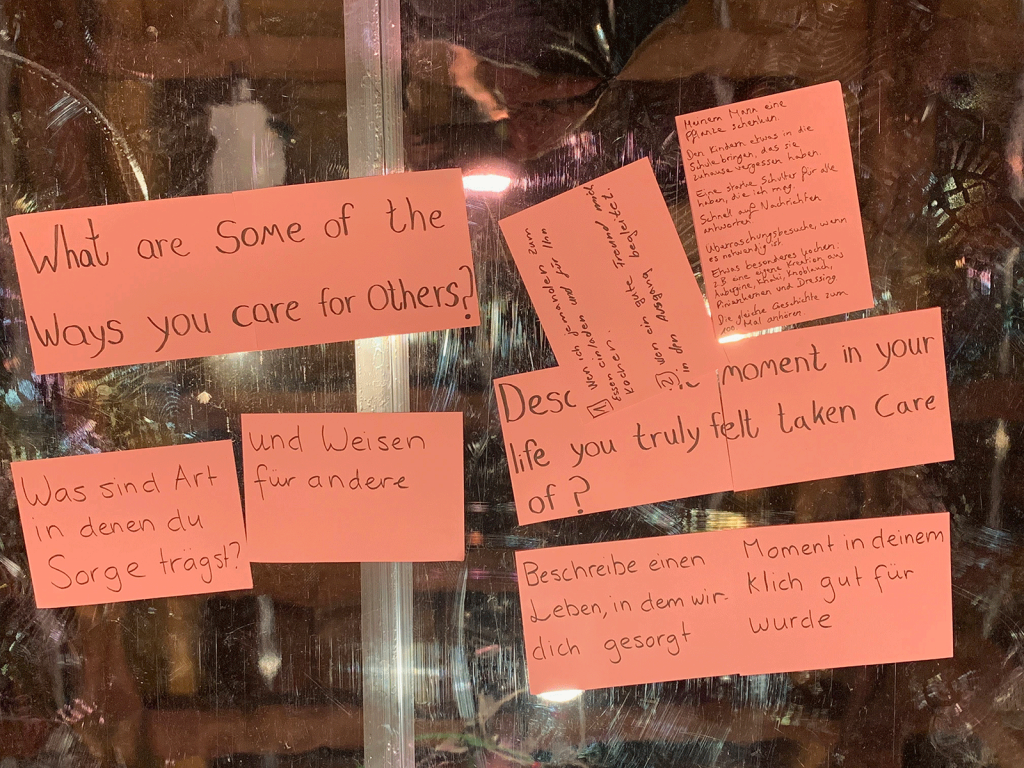 What are Some of the
Ways you care for Others?
Was sind Art
in denen du
Sorge trägst?
und Weisen
für andere
1) Wenn ich jemanden zum
Essen einladen und für ihn
kochen.
2) Von ein gute Freund
in den Ausgang begleitet?
Meinem Mann eine
Pflanze schenken.
Den Kindern etwas in die
Schule bringen, das sie
zuhause vergessen haben.
Eine starke Schulter für alle
haben, die ich mag.
Schnell auf Nachrichten
antworten
Überraschungsbesuche, wenn
es notwendig ist
Etwas besonderes kochen:
z.B eine eigene Kreation aus
Aubergine, Khaki, Knoblauch,
Pinienkernen und Dressing
Die gleiche Geschichte zum
100. Mal anhören
Desc moment in your
life you truly felt taken Care
of?
Beschreibe einen
Leben, in dem wir-
dich gesorgt
Moment in deinem
klich gut für
wurde